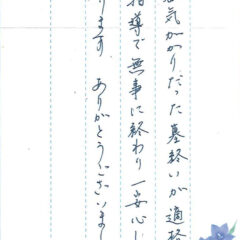 気がかりだった墓終いが適
指導で無事に終わり一安心し
ります ありがとうございまし